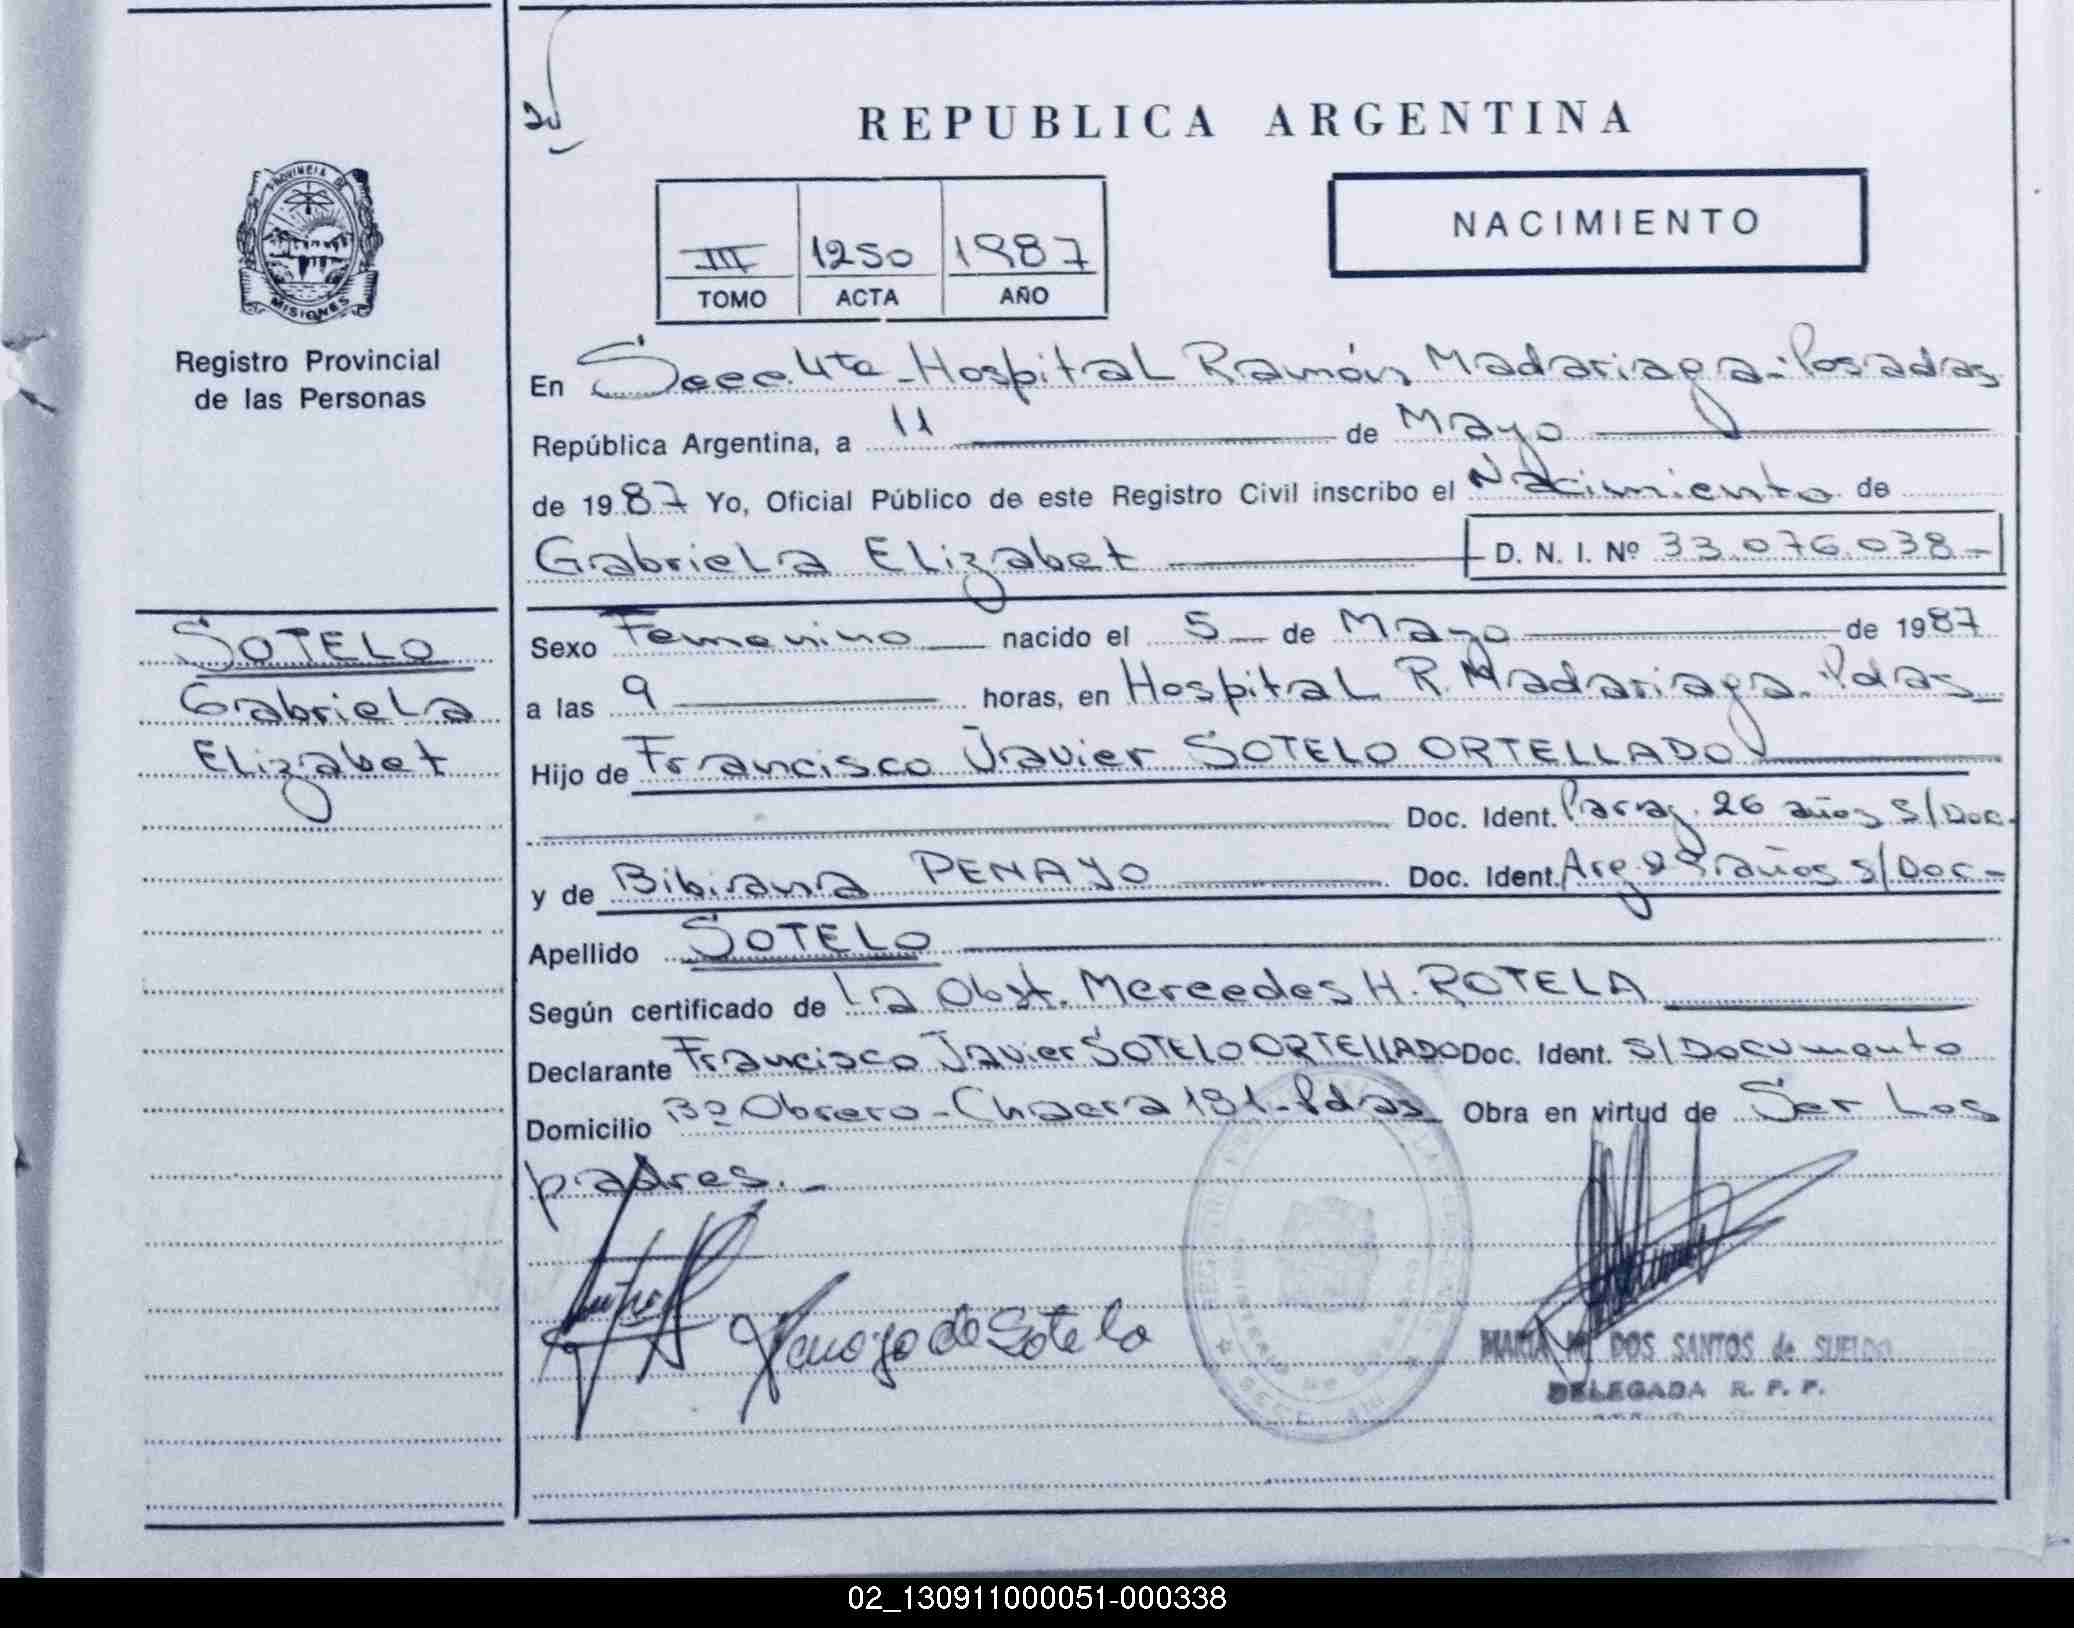 REPUBLICA ARGENTINA
NACIMIENTO
III 1250 1987
TOMO ACTA AÑO
PROVINCIA DE
MISIONES
Registro Provincial
de las Personas
En Secc. 4ta - Hospital Ramón Madariaga - Posadas
República Argentina, a 11 de Mayo
de 1987 Yo, Oficial Público de este Registro Civil inscribo el Nacimiento de
Gabriela Elizabet D. N. I. Nº 33.076.038-
SOTELO
Gabriela
Elizabet
Sexo Femenino nacido el 5 de Mayo de 1987
a las 9 horas, en Hospital R. Madariaga. Pdas
Hijo de Francisco Javier SOTELO ORTELLADO
Doc. Ident. Parag. 26 años S/Doc.
y de Bibiana PENAYO Doc. Ident. Arg. años S/Doc-
Apellido SOTELO
Según certificado de La Obst. Mercedes H. ROTELA
Declarante Francisco Javier SOTELO ORTELLADO Doc. Ident. S/Documento
Domicilio Bº Obrero - Chacra 191 - Pdas Obra en virtud de Ser Los
padres. -
Penayo de Sotelo
MARIA DOS SANTOS de SUELDO
DELEGADA R. P. P.
02_130911000051-000338